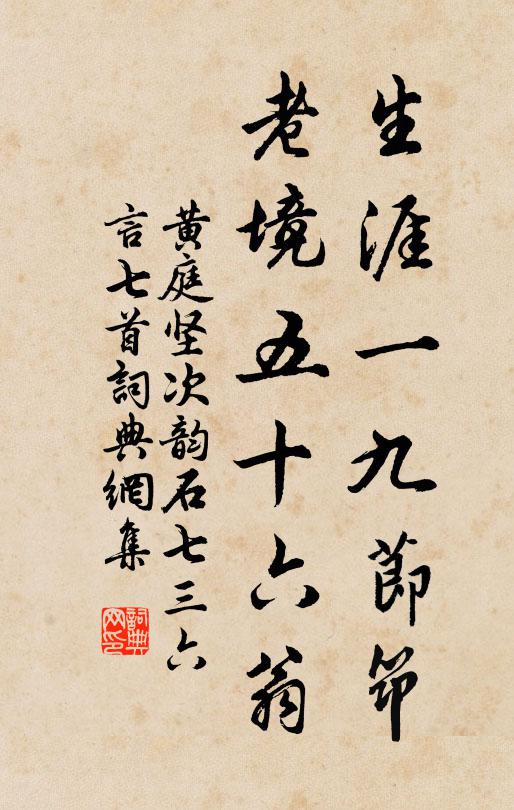 生涯一九節筇
老境五十六翁
黄庭坚次韵石七三六
言七首詞典網集
詞典
网印